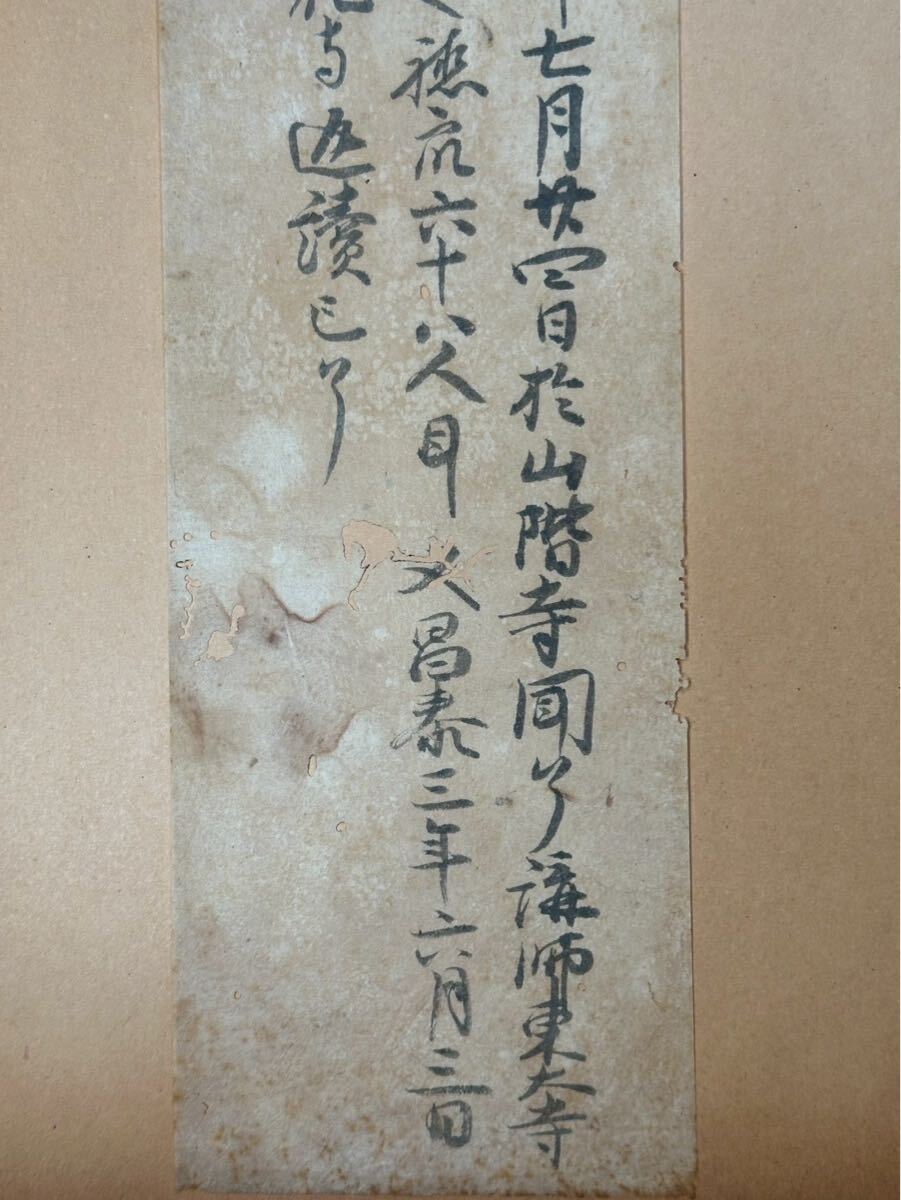 七月廿四日於山階寺聞了講師東大寺
德宿六十八人耳 又昌泰三年六月三日
寺返讀已了